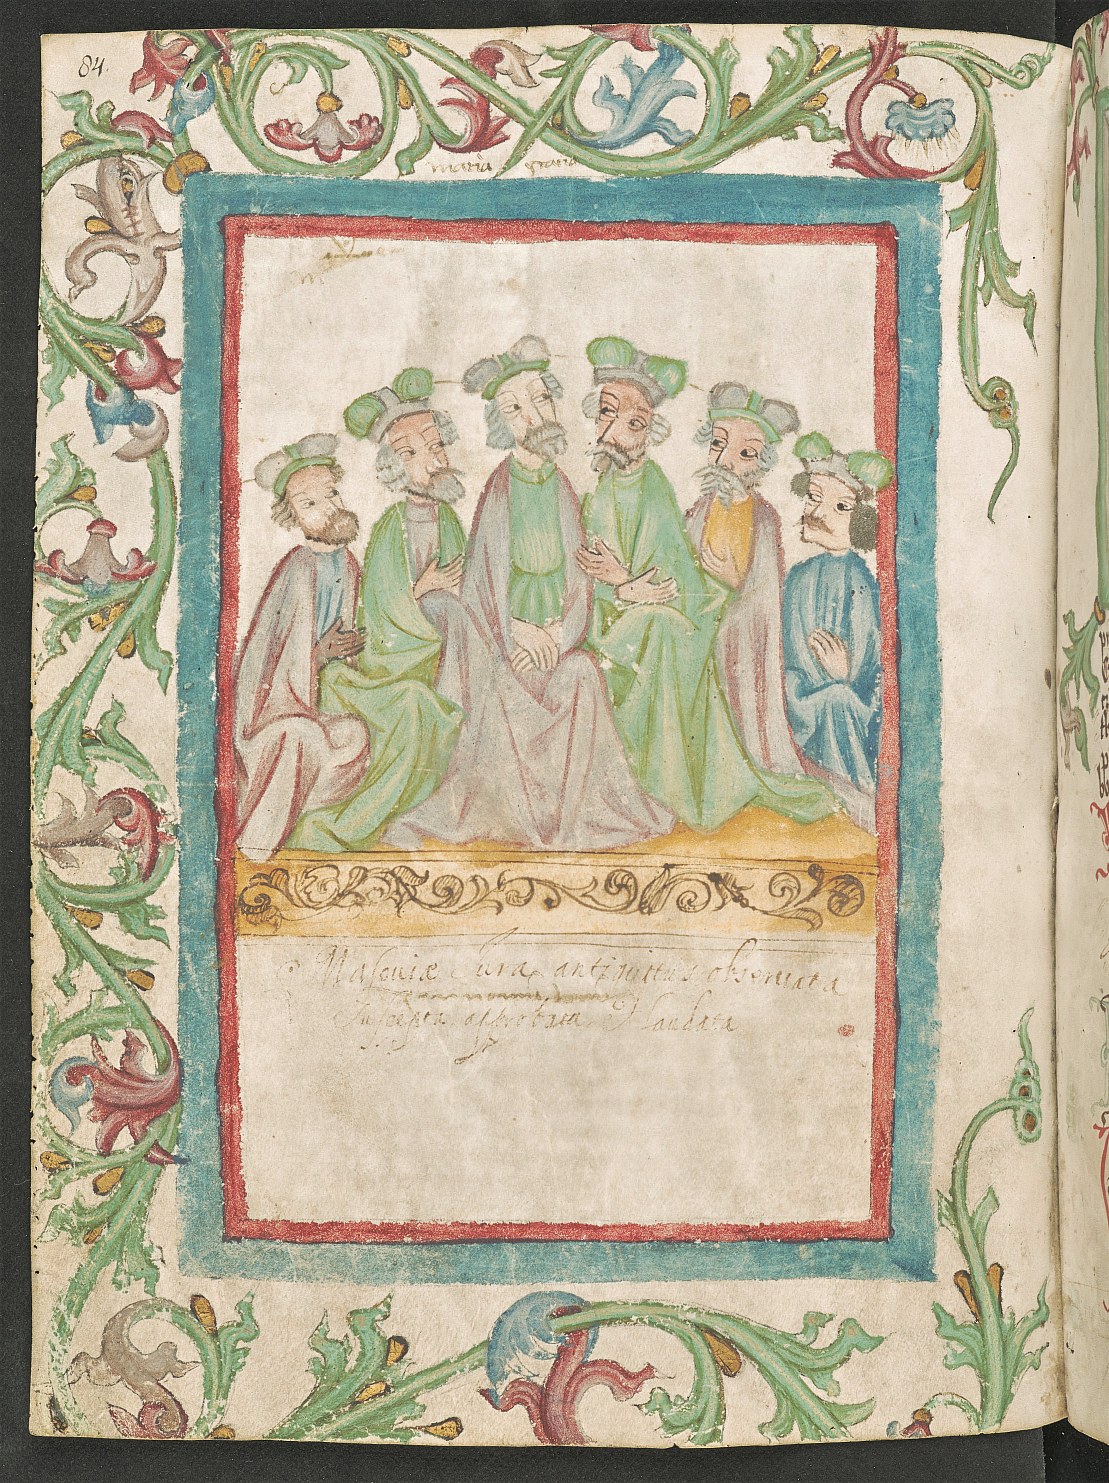 84.
maria gratia
Masoviæ Jura antiquitus observata
suscepta approbata & laudata